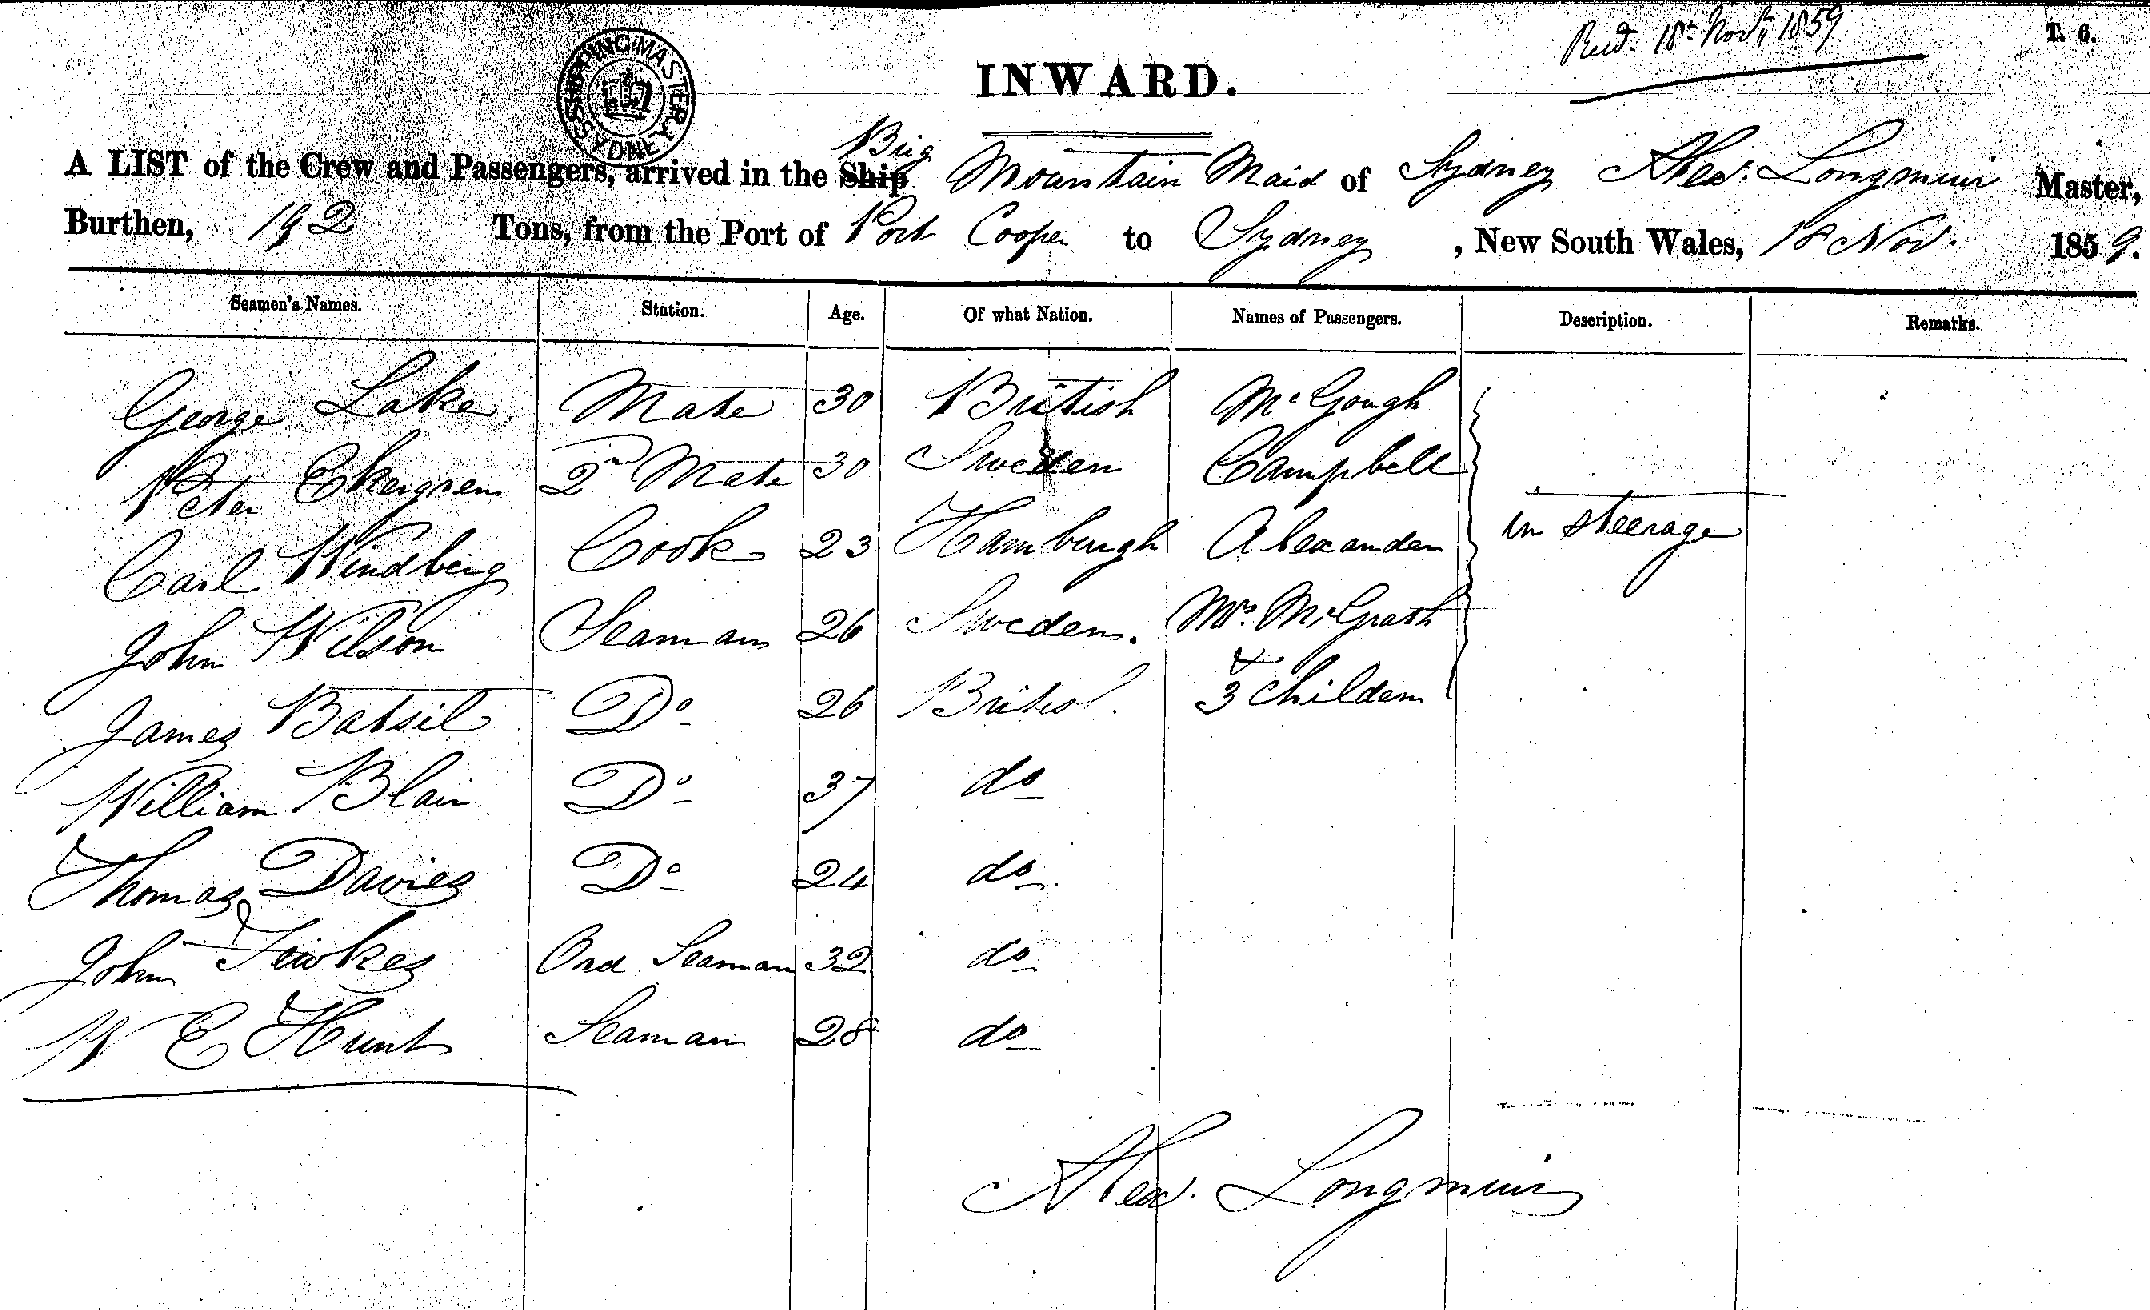 Recd. 18th Novr. 1859
T. 6.
SHIPPING MASTER SYDNEY
INWARD.
Brig
A LIST of the Crew and Passengers, arrived in the Ship Mountain Maid of Sydney Alexr. Longmuir Master,
Burthen, 192 Tons, from the Port of Port Cooper to Sydney, New South Wales, 18 Nov. 1859.
Seamen's Names. Station. Age. Of what Nation. Names of Passengers. Description. Remarks.
George Lake Mate 30 British McGough
Peter Ekergren 2nd Mate 30 Sweden Campbell
Carl Windberg Cook 23 Hamburgh Alexander in steerage
John Wilson Seaman 26 Sweden. Mrs. McGrath
James Batsil Do 26 British &
3 Childern
William Blair Do 37 do
Thomas Davies Do 24 do
John Fewkes Ord Seaman 32 do
W E Hunt Seaman 28 do
Alex. Longmuir